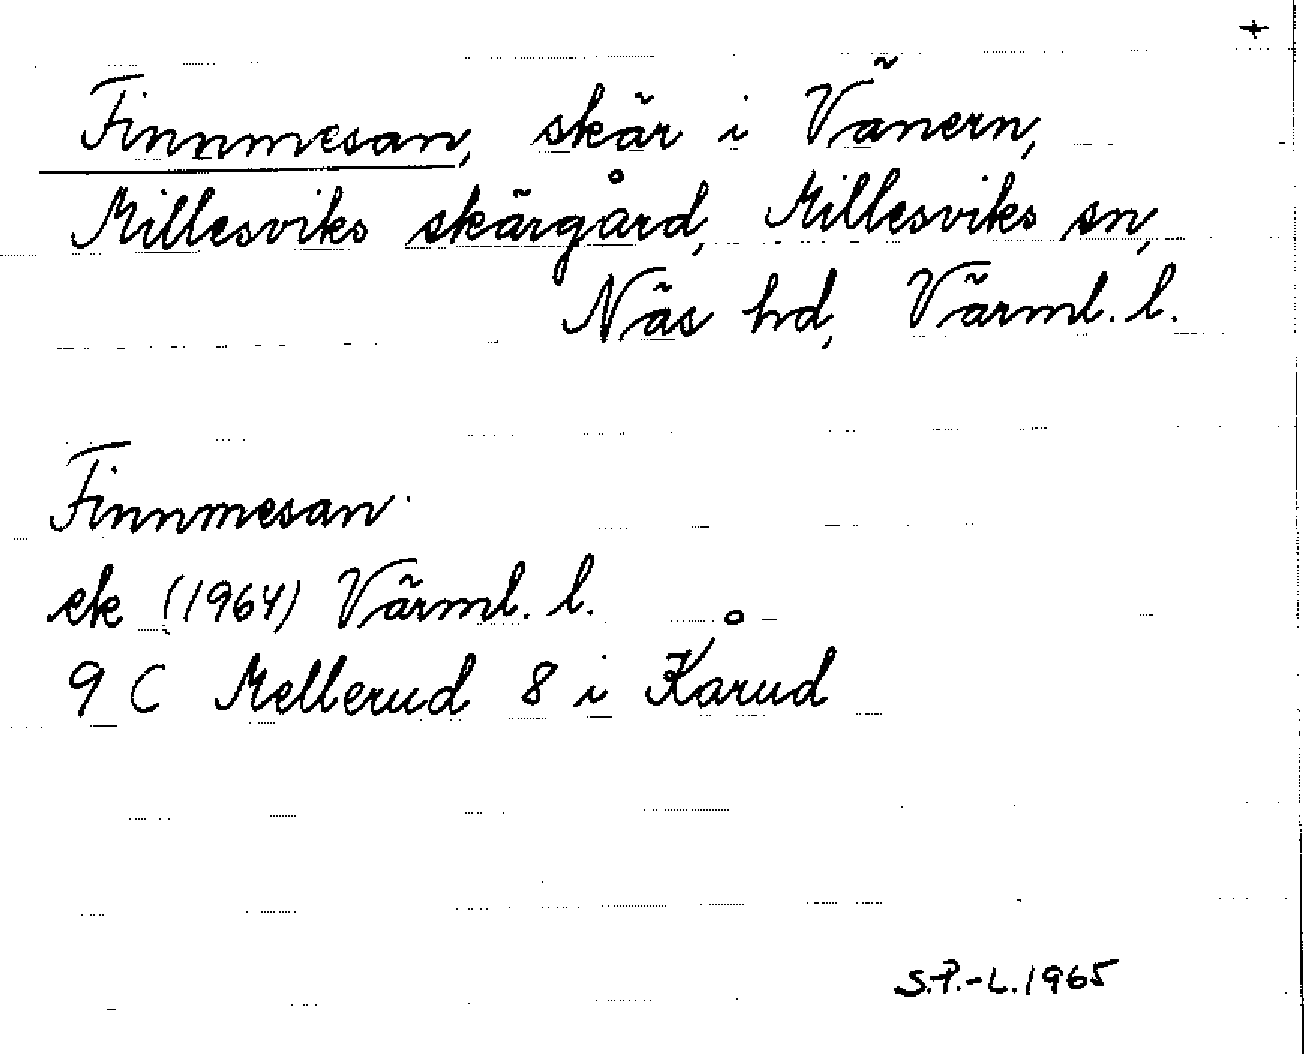 +
Finnmesan, skär i Vänern,
Millesviks skärgård, Millesviks sn,
Näs hd, Värml. l.
Finnmesan
ek (1964) Värml. l.
9 C Mellerud 8 i Kårud
S.P.-L. 1965